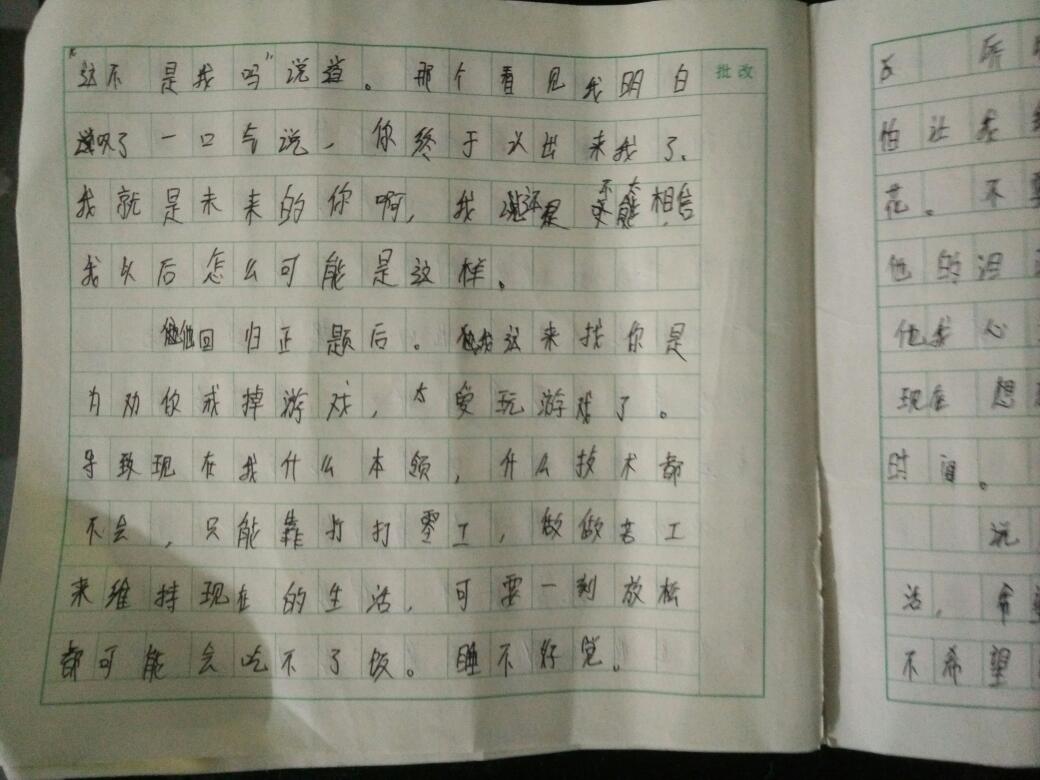 “这不是我吗”说道。那个看见我明白
叹了一口气说，你终于认出来我了、
我就是未来的你啊，我还是不太能相信，
我以后怎么可能是这样。
他回归正题后。我这来找你是
为劝你戒掉游戏，太爱玩游戏了。
导致现在我什么本领，什么技术都
不会，只能靠打打零工，做做苦工
来维持现在的生活，可要一刻放松
都可能会吃不了饭。睡不好觉。
批改
所
怕让我
花。不要
他的泪
他我心
现在想
时间。
玩
活，希望
不希望